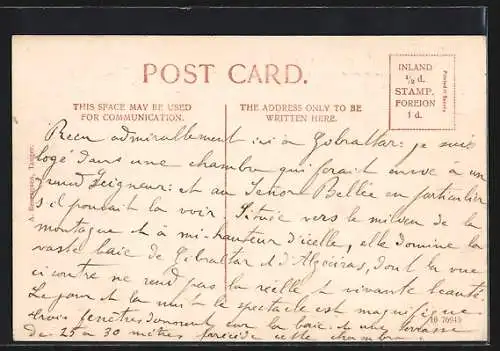 POST CARD.
THIS SPACE MAY BE USED
FOR COMMUNICATION.
THE ADDRESS ONLY TO BE
WRITTEN HERE.
INLAND
½ d.
STAMP.
FOREIGN
1 d.
Printed in Saxony
Tanger.
Reçu admirablement ici à Gibraltar: je suis
logé dans une chambre qui ferait envie à un
grand Seigneur: et au Señor Bellée en particulier
s'il pouvait la voir. Située vers le milieu de la
montagne et à mi-hauteur d'icelle, elle domine la
vaste baie de Gibraltar et d'Algéciras, dont la vue
ci contre ne rend pas la réelle et vivante beauté.
Le jour et la nuit le spectacle est magnifique.
trois fenêtres donnent sur la baie et une terrasse
de 25 à 30 mètres précède cette chambre.
76945